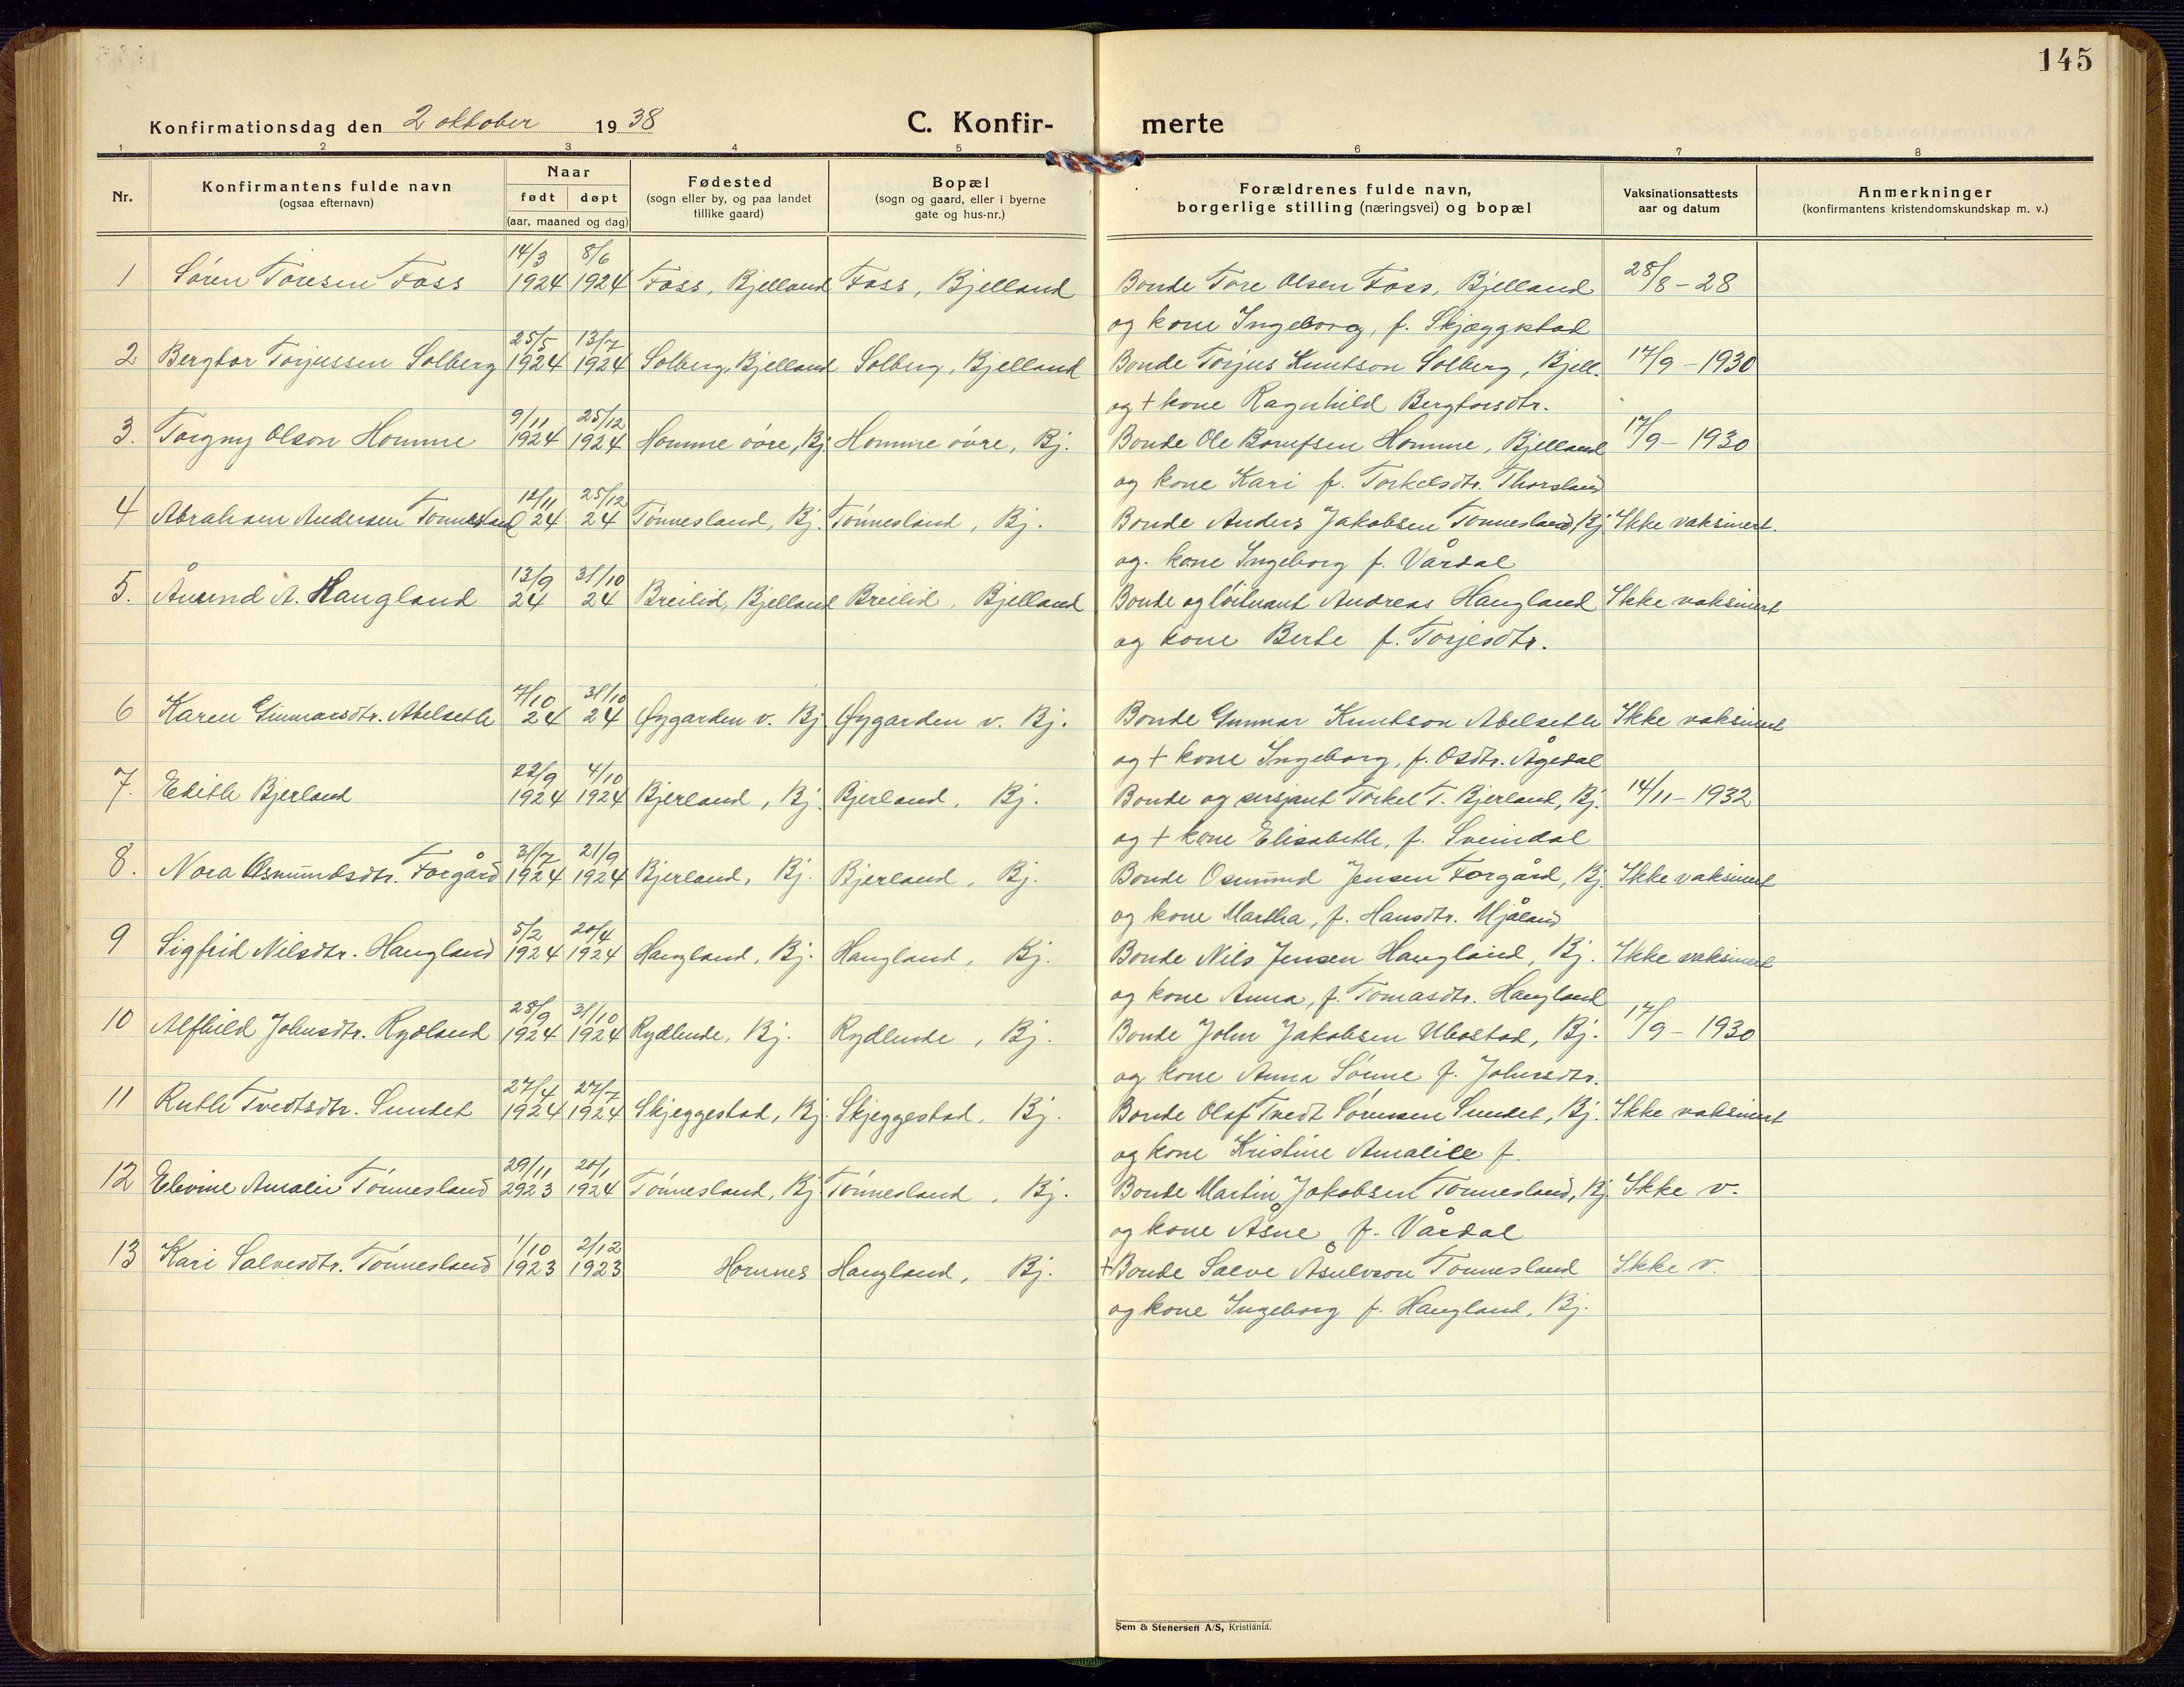 145
Konfirmationsdag den 2 oktober 1938
C. Konfir- merte
1 2 3 4 5 6 7 8
Nr.
Konfirmantens fulde navn
(ogsaa efternavn)
Naar
født døpt
(aar, maaned og dag)
Fødested
(sogn eller by, og paa landet
tillike gaard)
Bopæl
(sogn og gaard, eller i byerne
gate og hus-nr.)
Forældrenes fulde navn,
borgerlige stilling (næringsvei) og bopæl
Vaksinationsattests
aar og datum
Anmerkninger
(konfirmantens kristendomskundskap m. v.)
14/3 8/6
1 Søren Toresen Foss 1924 1924 Foss, Bjelland Foss, Bjelland Bonde Tore Olsen Foss, Bjelland 28/8 - 28
og kone Ingeborg, f. Skjæggstad
25/5 13/7
2 Bergtor Torjussen Solberg 1924 1924 Solberg, Bjelland Solberg, Bjelland Bonde Torjus Knutson Solberg, Bjell. 17/9 - 1930
og + kone Ragnhild Bergtorsdtr.
9/11 25/12
3. Torgny Olson Homme 1924 1924 Homme øvre, Bj. Homme øvre, Bj. Bonde Ole Homme, Bjelland 17/9 - 1930
og kone Kari f. Torkelsdtr. Thorsland
12/11 25/12
4 Abraham Andersen Tønnesland 24 24 Tønnesland, Bj. Tønnesland, Bj. Bonde Anders Jakobsen Tønnesland, Bj. Ikke vaksinert.
og. kone Ingeborg f. Vårdal
13/9 31/10
5. Ånund A. Haugland 24 24 Breilid, Bjelland Breilid, Bjelland Bonde og løitnant Andreas Haugland Ikke vaksinert
og kone Berte f. Torjesdtr.
7/10 31/10
6 Karen Gunnarsdtr. Abelseth 24 24 Øygarden v. Bj. Øygarden v. Bj. Bonde Gunnar Knutson Abelseth Ikke vaksinert
og + kone Ingeborg, f. Osdtr. Ågedal
22/9 4/10
7. Edith Bjerland 1924 1924 Bjerland, Bj. Bjerland, Bj. Bonde og sersjant Torkel T. Bjerland, Bj. 14/11 - 1932
og + kone Elisabeth, f. Sveindal
31/7 21/9
8. Nora Osmundsdtr. Forgård 1924 1924 Bjerland, Bj. Bjerland, Bj. Bonde Osmund Jensen Forgård, Bj. Ikke vaksinert
og kone Martha, f. Hansdtr. Mjåland
5/2 20/4
9 Sigfrid Nilsdtr. Haugland 1924 1924 Haugland, Bj. Haugland, Bj. Bonde Nils Jensen Haugland, Bj. Ikke vaksinert
og kone Anna, f. Tomasdtr. Haugland
28/9 31/10
10 Alfhild Johnsdtr. Rydland 1924 1924 Rydlende, Bj. Rydlende, Bj. Bonde John Jakobsen Ubostad, Bj. 17/9 - 1930
og kone Anna Sønne f. Johnsdtr.
27/4 27/7
11 Ruth Tvedtsdtr. Sundet 1924 1924 Skjeggestad, Bj. Skjeggestad, Bj. Bonde Olaf Tvedt Sørensen Sundet, Bj. Ikke vaksinert
og kone Kristine Amalie f.
29/11 20/1
12 Elevine Amalie Tønnesland 2923 1924 Tønnesland, Bj Tønnesland, Bj. Bonde Martin Jakobsen Tønnesland, Bj. Ikke v.
og kone Åsne f. Vårdal
1/10 2/12
13 Kari Salvesdtr. Tønnesland 1923 1923 Hornnes Haugland, Bj. + Bonde Salve Åsulvson Tønnesland Ikke v.
og kone Ingeborg f. Haugland, Bj.
Sem & Stenersen A/S, Kristiania.